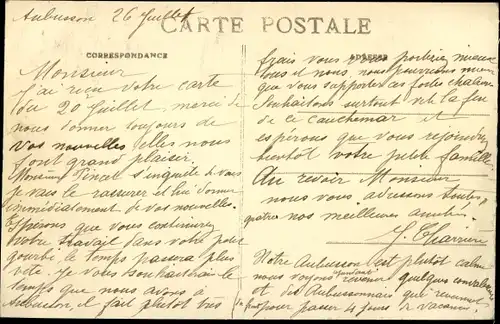 Aubusson 26 Juillet
CARTE POSTALE
CORRESPONDANCE
ADRESSE
Monsieur
J'ai reçu votre carte
du 20 Juillet, merci de
nous donner toujours de
vos nouvelles elles nous
font grand plaisir.
Monsieur s'inquiète de vous
Je vais le rassurer et lui donner
immédiatement de vos nouvelles.
Espérons que vous continuerez
votre travail dans votre
le temps passera plus
vite. Je vous souhaiterais le
temps que nous avons à
Aubusson, il fait plutôt très
frais vous vous porteriez mieux
tous et nous, nous pourrions
que vous supportez ces fortes chaleurs
Souhaitons surtout vite la fin
de ce cauchemar et
espérons que vous rejoindrez
bientôt votre petite famille.
Au revoir Monsieur
nous vous adressons toutes
quatre nos meilleures amitiés.
J. Charrière
Notre Aubusson est plutôt calme
nous voyons pendant quelques
et des Aubussonnais que reviennent
pour passer 4 jours de vacances.